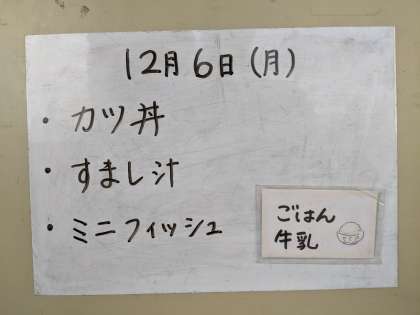 12月6日(月)
・カツ丼
・すまし汁
・ミニフィッシュ
ごはん
牛乳